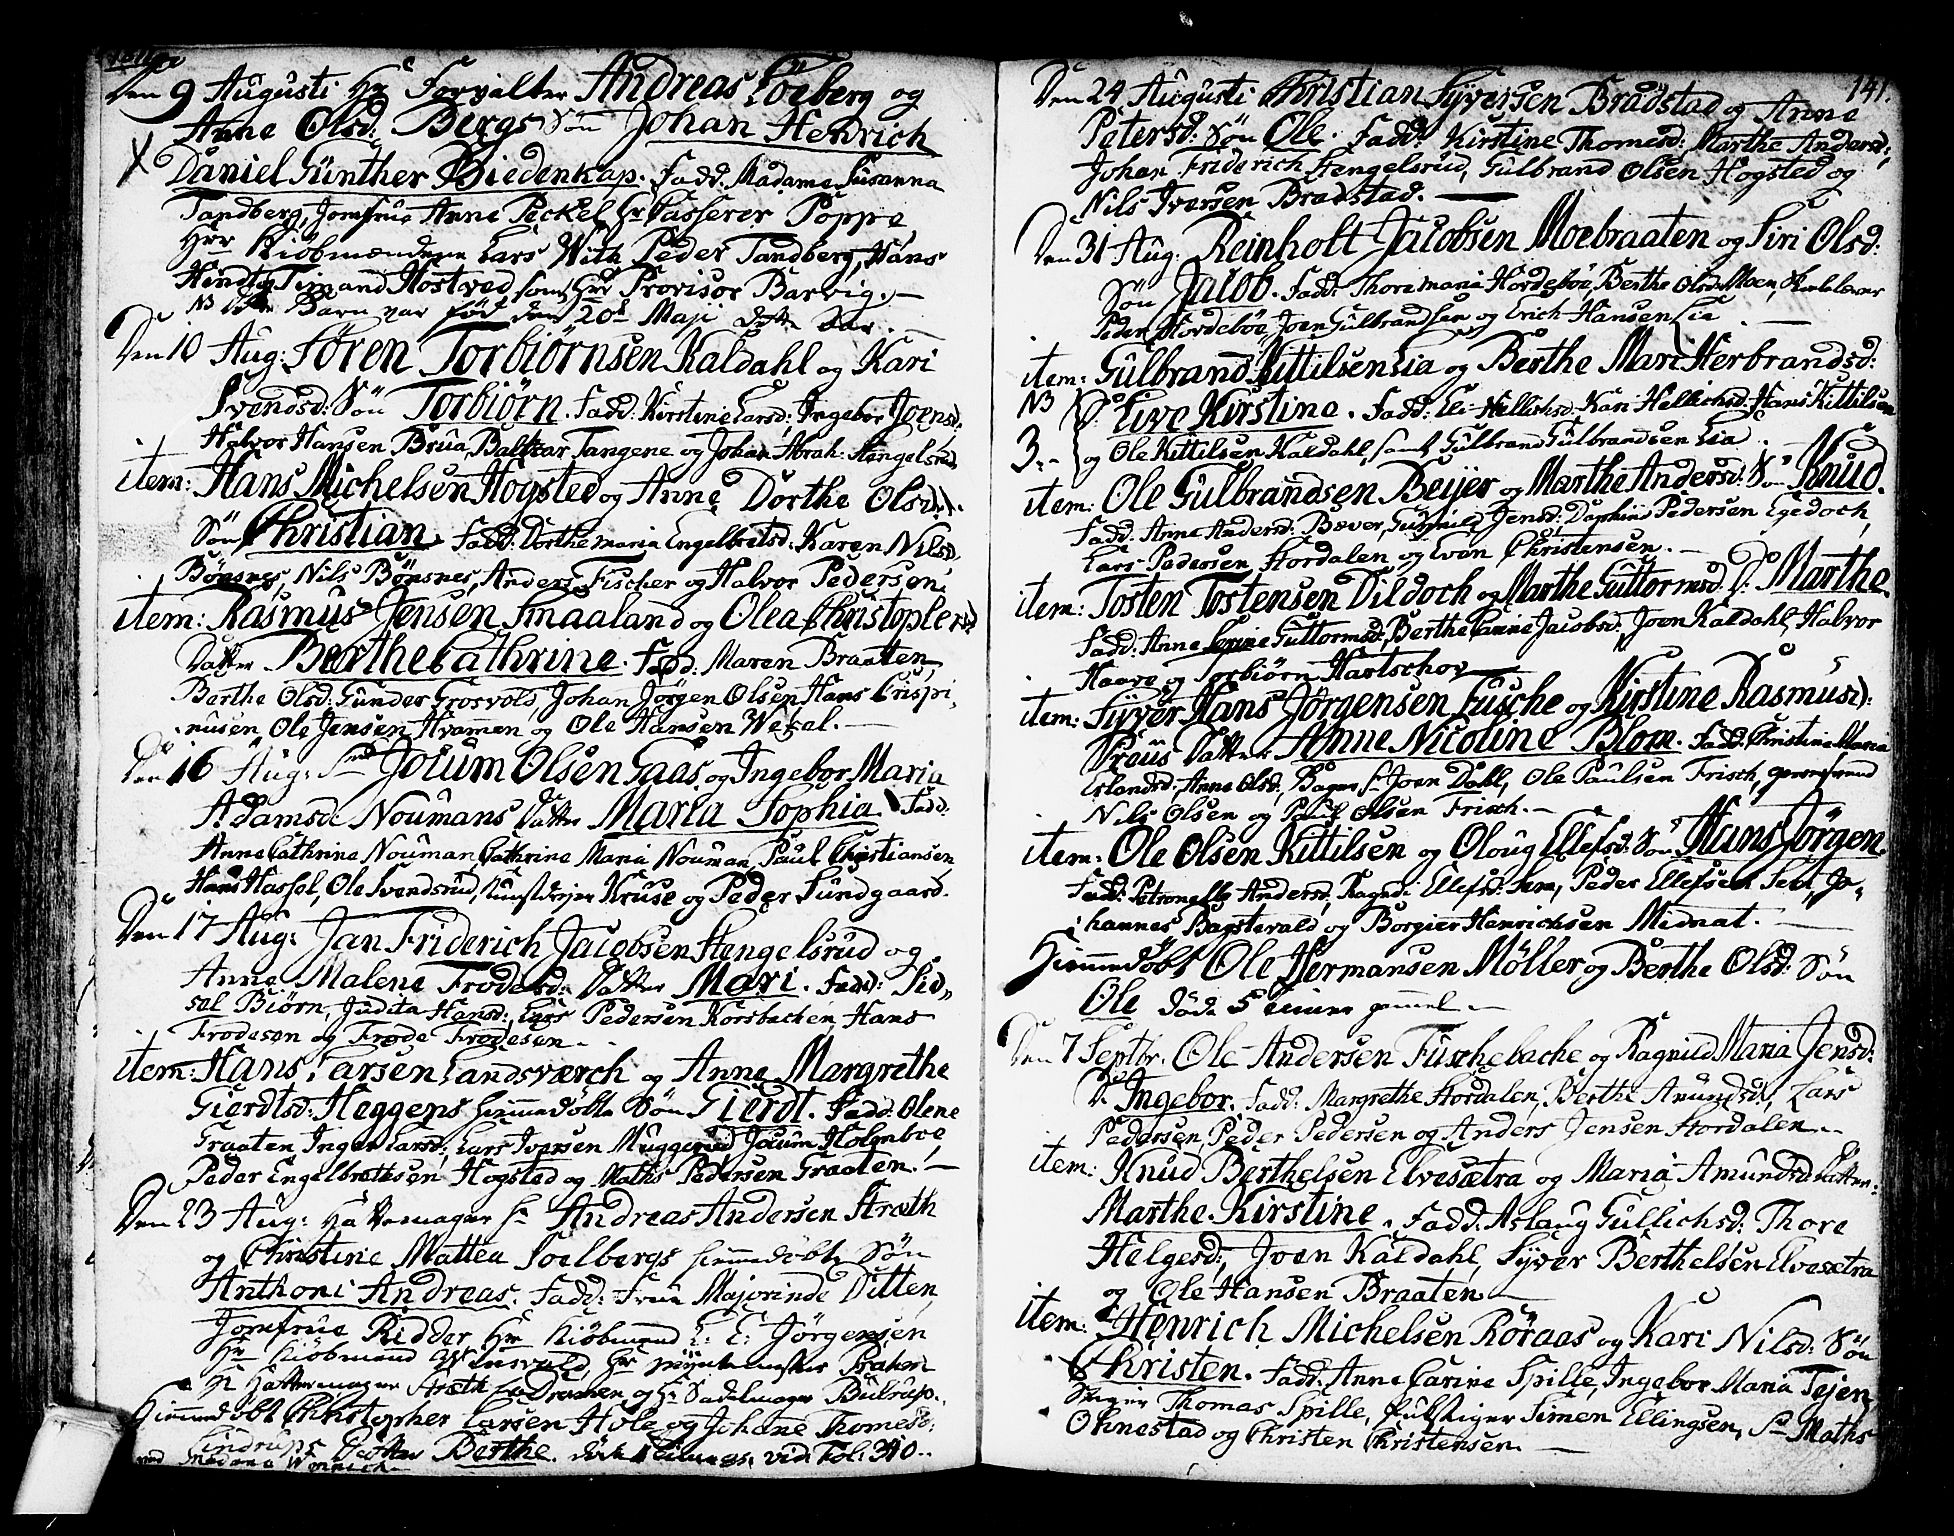 Den 9 Augusti Hr Forvalter Andreas Löeberg og
Anne Olsd: Bergs Sön Johan Henrich
Daniel Günther Biedenkap. Fadd. Madame Susanna
Tandberg, Jomfrue Anne Peckel Hr Casserer Poppe
Hrr Kiöbmændene Lars With Peder Tandberg, Hans
Timand Hostved samt Hr Provisor Barvig. —
NB Barn var föd den 20de Maji
Den 10 Aug: Sören Torbiörnsen Kaldahl og Kari
Svendsd: Sön Torbiörn. Fadd: Kirstine Larsd: Ingebor Joensd.
Halvor Hansen Brua, Baltzar Tangene og Johan Abrah: Hengelsrud
item: Hans Michelsen Hogsted og Anne Dorthe Olsd:
Sön Christian. Fadd: Dorthe maria Engelbretsd: Karen Nilsd.
Bönsnes, Nils Bönsnes, Anders Fischer og Halvor Pedersen.
item: Rasmus Jensen Smaaland og Olea Christophersd:
Datter Berthe Cathrine. Fadd: Maren Braaten,
Berthe Olsd: Gunder Grosvold, Johan Jörgen Olsen Hans Crispi,
nusen Ole Jensen Hvammen og Ole Hansen Wefal. —
Den 16 Aug: Jocum Olsen Gaas og Ingebor Maria
Adamsd: Noumans Datter Maria Sophia. Fadd:
Anne Cathrine Nouman Cathrine Maria Nouman, Paul Christiansen
Hans Hassel, Ole Svendsrud, Kunstdrejer Kruse og Peder Sundgaard.
Den 17 Aug: Jan Friderich Jacobsen Hengelsrud og
Anne Malene Frodesd: Datter Mari. Fadd: Sid„
sel Biörn, Judita Hansd: Lars Pedersen Korsbachen, Hans
Frodesen og Frode Frodesen.
item: Hans Larsen Landsværch og Anne Margrethe
Gierdtsd: Heggens hiemmedöbte Sön Gierdt. Fadd: Olene
Graaten Inger Larsd: Lars Iversen Muggerud Jocum Holmboe
Peder Engelbretsen Hogsted og Mathis Pedersen Graaten. —
Den 23 Aug: Hattemager Hr Andreas Andersen Stræth
og Christine Mattea Soelbergs hiemmedöbte Sön
Anthoni Andreas. Fadd: Frue Majorinde Ditten,
Jomfrue Ridder, Hr Kiöbmand E: E: Jörgensen
Hr Kiöbmand Winsvald, Hr Myntemester Prahm
Hr Hattemager Stræth fra Dramen og Hr Sadelmager Butrup.
Hiemmedöbt Christopher Larsen Hole og Johane Thomesd:
Lindrups Datter Berthe. vid: Fol: 310.
141.
Den 24 Augusti Christian Syversen Bradstad og Anne
Petersd: Sön Ole. Fadd: Kirstine Thomesd: Marthe Andersd:
Johan Friderich Hengelsrud, Gulbrand Olsen Hogsted og
Nils Iversen Bradstad. —
Den 31 Aug: Reinholt Jacobsen Moebraaten og Siri Olsd:
Sön Jacob. Fadd: Thore maria Hordeböe, Berthe Olsd: Moen,
Peder Hordeböe, Joen Gulbrandsen og Erich Hansen Lia
item: Gulbrand Kittilsen Lia og Berthe Mari Herbrandsd:
NB Dr Live Kirstine. Fadd: Eli Hellichsd. Kari Hellichsd. Hans Kittilsen
3:- og Ole Kittilsen Kaldahl, samt Gulbrand Gulbrandsen Lia.
item: Ole Gulbrandsen Beijer og Marthe Andersd: Sön Knud.
Fadd: Anne Andersd: Bæver, Gunnild Jensd: Daphins Pedersen Egedoch,
Lars Pedersen Hordalen og Even Christensen. —
item: Tosten Tostensen Dildoch og Marthe Guttormsd. Dr: Marthe
Fadd: Anne Lenine Guttormsd; Berthe Canine Jacobsd: Joen Kaldahl, Halvor
Haavo og Torbiörn Hartschov
item: Syver Hans Jörgensen Fusche og Kirstine Rasmusd:
Preus Datter Anne Nicoline Blom. Fadd: Christine Maria
Erlandsd: Anne Olsd, Bager Sr Joen Dahl, Ole Paulsen Frisch,
Nils Olsen og Paul Olsen Frisch. —
item: Ole Olsen Kittilsen og Oloug Ellefsd: Sön Hans Jörgen.
Fadd: Petronelle Andersd, Ragndi Ellefsd: Sem, Peder Ellefsen Sem, Jo„
hannes Bagstevald og Borgier Henrichsen Midnat. —
Hiemmedöbt Ole Hermansen Möller og Berthe Olsd: Sön
Ole döde 5 timer gammel —
Den 7 Septbr. Ole Andersen Fuschebache og Ragnild Maria Jensd:
Dr Ingebor. Fadd: Margrethe Hordalen, Berthe Amundsd:, Lars
Pedersen, Peder Pedersen og Anders Jensen Hordalen —
item: Knud Berthelsen Elvesætra og Maria Amundsd: Datter:
Marthe Kirstine. Fadd: Aslaug Gullichsd: Thore
Helgesd:, Joen Kaldahl, Syver Berthelsen Elvesætra
og Ole Hansen Braaten —
item: Henrich Michelsen Röraas og Kari Nilsd: Sön
Christen. Fadd: Anne Carine Spille, Ingebor Maria Tejen,
Thomas Spille, Simen Ellingsen, Sr Maths
Ohnestad og Christen Christensen. —